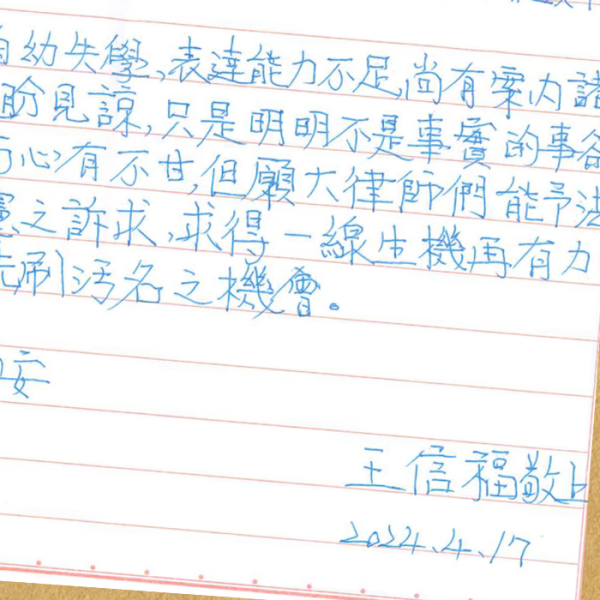 自幼失學,表達能力不足,尚有案內諸
盼見諒,只是明明不是事實的事卻
心有不甘,但願大律師們能予法
之訴求,求得一線生機再有力
刷污名之機會。
安
王信福敬上
2024.4.17